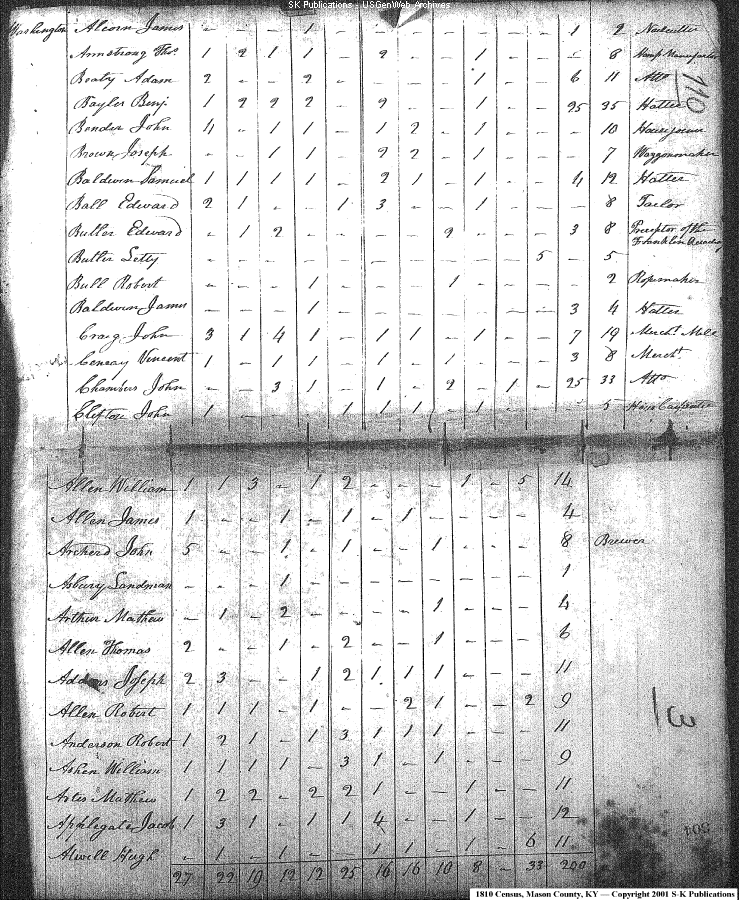 SK Publications - USGenWeb Archives
Washington Alcorn James - - - 1 - - - - - - 1 2 Nailcutter
Armstrong Thos. 1 2 1 1 - 2 - - 1 - - - 8
Beaty Adam 2 - - 2 - - - - 1 - - 6 11 Atto
Bayler Benj. 1 2 2 2 - 2 - - 1 - - 25 35 Hatter
110
Bender John 4 - 1 1 - 1 2 - 1 - - - 10
Brown Joseph - - 1 1 - 2 2 - 1 - - - 7 Waggonmaker
Baldwin Samuel 1 1 1 1 - 2 1 - 1 - - 4 12 Hatter
Ball Edward 2 1 - - 1 3 - - 1 - - - 8 Taelor
Butler Edward - 1 2 - - - - 2 - - - 3 8 Preceptor of the
Franklin Academy
Butler Letty - - - - - - - - - - 5 - 5
Bull Robert - - - 1 - - - 1 - - - - 2 Ropemaker
Baldwin James - - - 1 - - - - - - - 3 4 Hatter
Craig John 3 1 4 1 - 1 1 - 1 - - 7 19 Mercht.
Vincent 1 - 1 1 - 1 - 1 - - - 3 8 Mercht
Chambers John - - 3 1 - 1 - 2 - 1 - 25 33 Atto
Clifton John 1 - - - 1 1 1 - 1 - - - 5 House Carpenter
Allen William 1 1 3 - 1 2 - - - 1 - 5 14
Allen James 1 - - 1 - 1 - 1 - - - - 4
Archerd John 5 - - 1 - 1 - - 1 - - - 8 Brewer
Asbury Landman - - - 1 - - - - - - - - 1
Arthur Mathew - 1 - 2 - - - - 1 - - - 4
Allen Thomas 2 - - 1 - 2 - - 1 - - - 6
Addams Joseph 2 3 - - 1 2 1 1 1 - - - 11
Allen Robert 1 1 1 - 1 - - 2 1 - - 2 9
Anderson Robert 1 2 1 - 1 3 1 1 1 - - - 11
Ashen William 1 1 1 1 - 3 1 - 1 - - - 9
Artes Mathew 1 2 2 - 2 2 1 - - 1 - - 11
Applegate Jacob 1 3 1 - 1 1 4 - - 1 - - 12
Atwill Hugh - 1 - 1 - - 1 1 - 1 - 6 11
27 22 19 12 12 25 16 16 10 8 - 33 200
1810 Census, Mason County, KY — Copyright 2001 S-K Publications